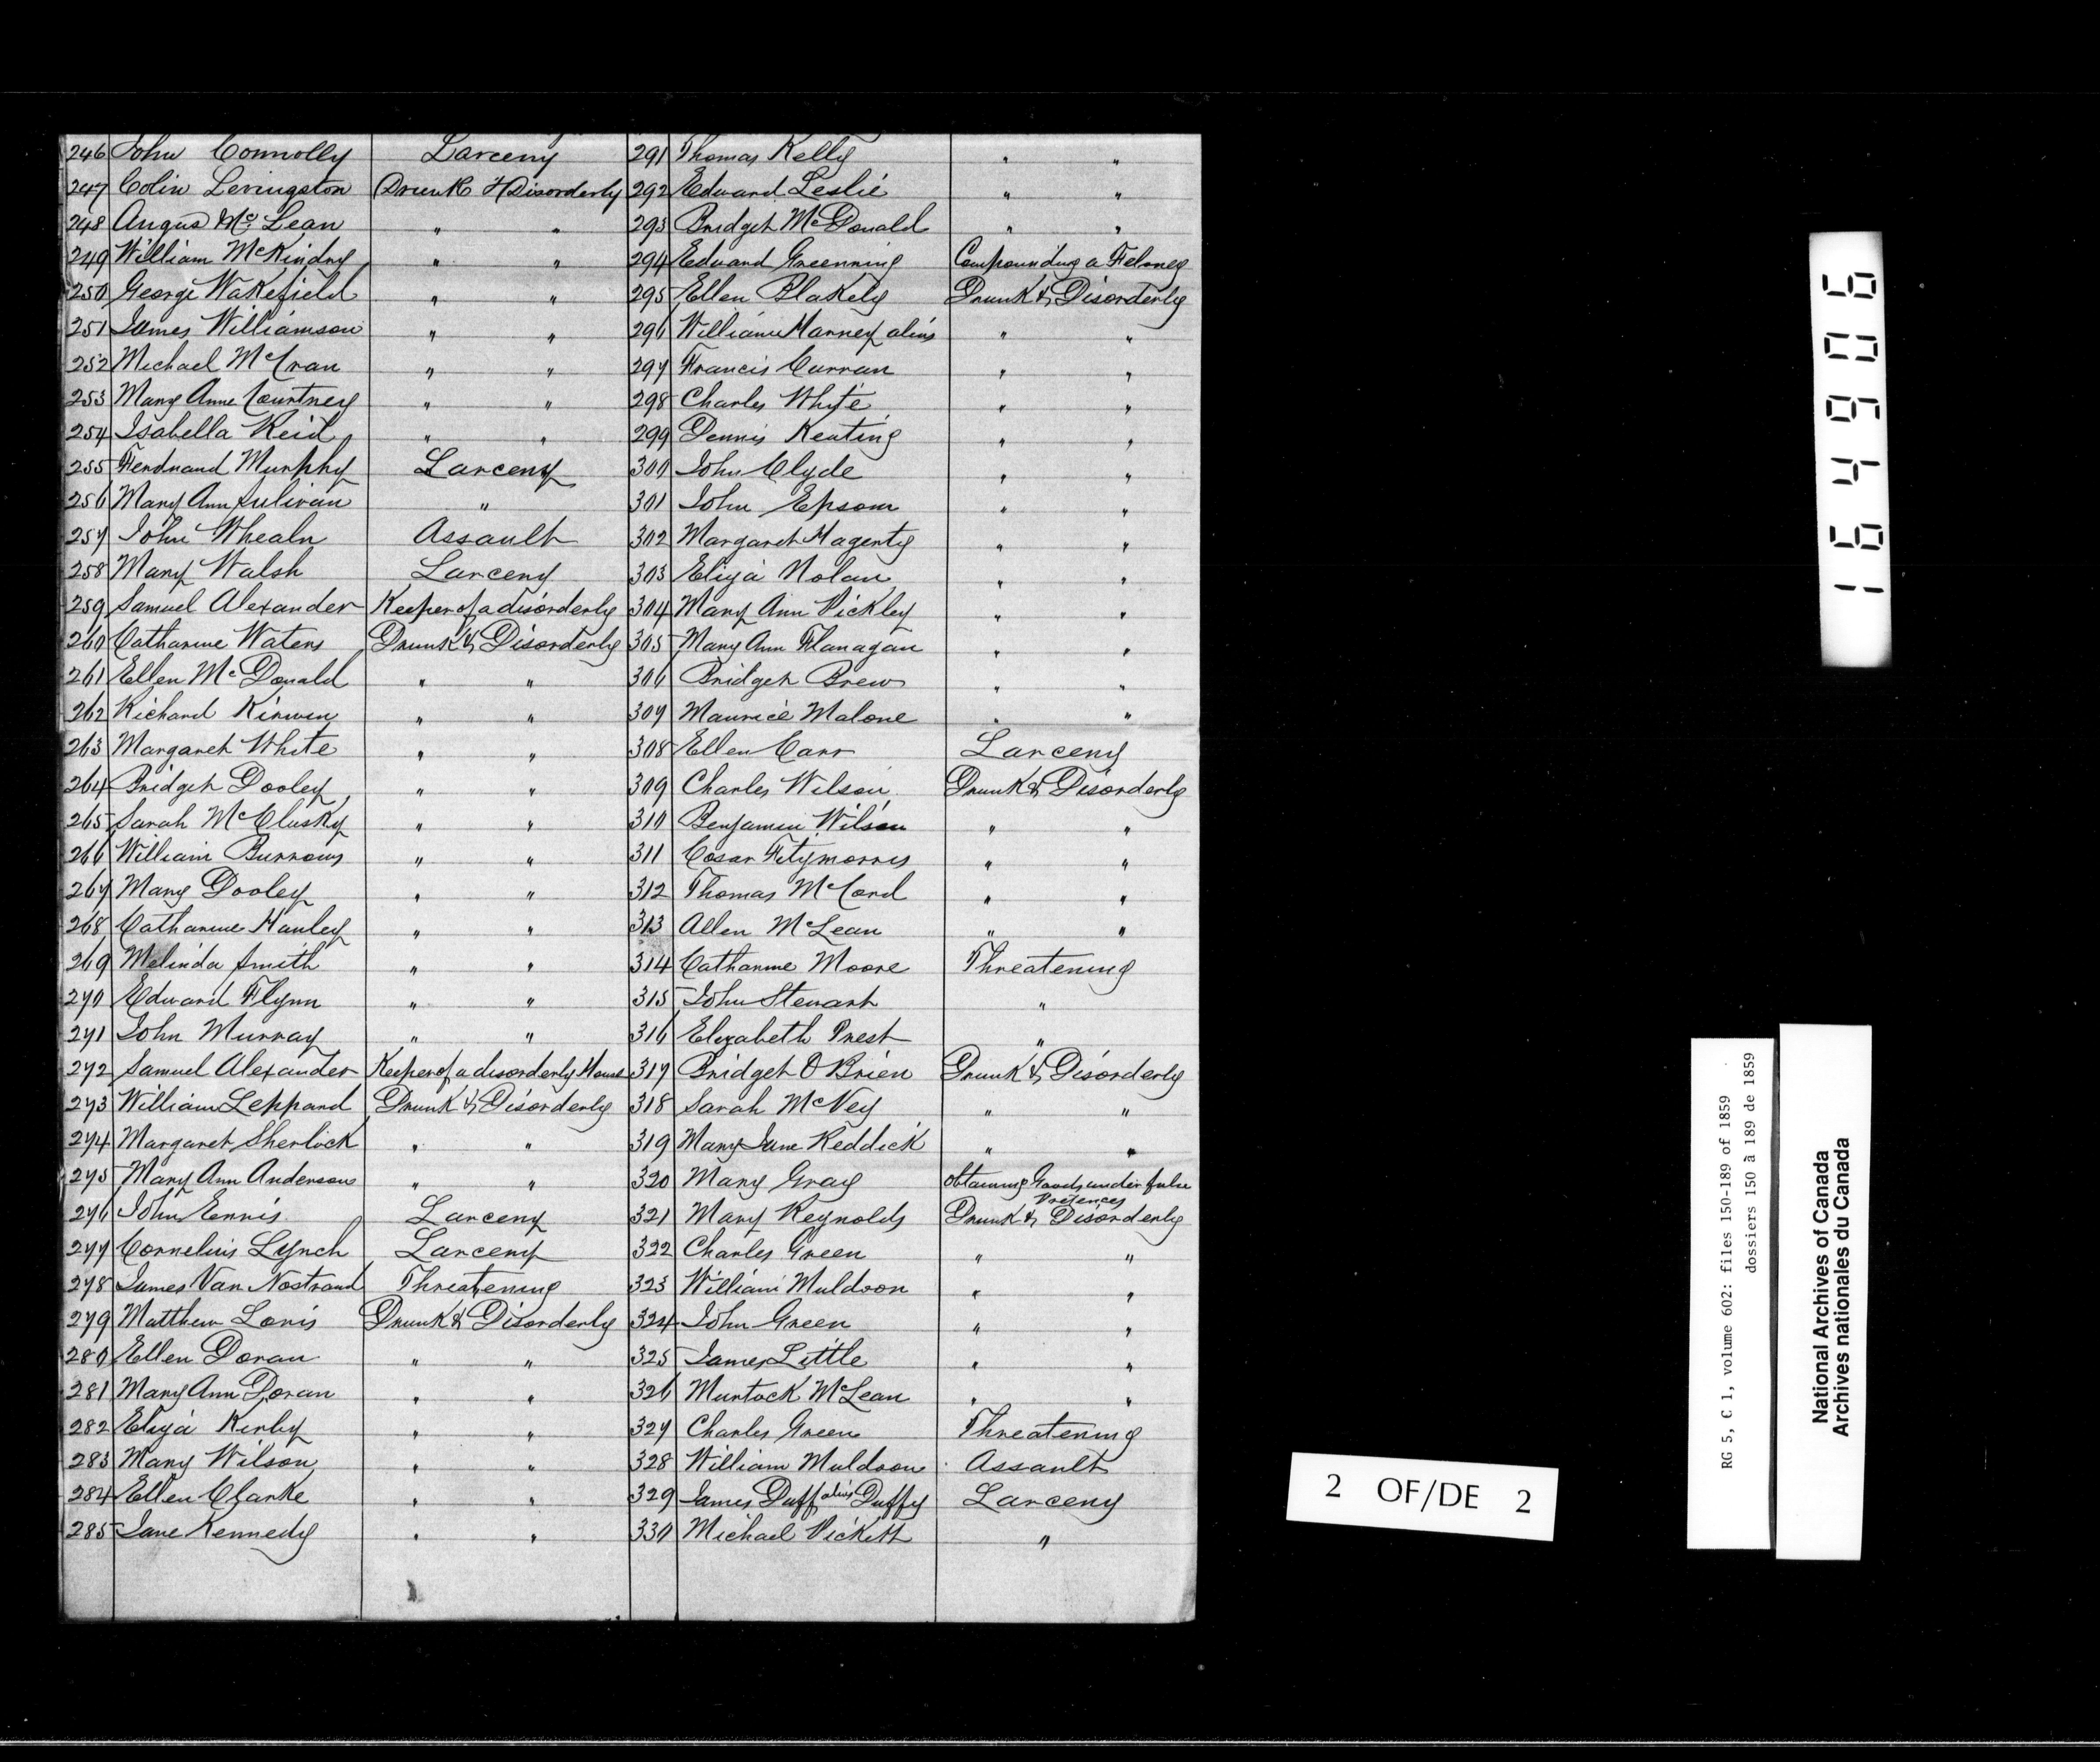 246 John Connolly Larceny
247 Colin Levingston Drunk & Disorderly
248 Angus Mc Lean " "
249 William McKindry " "
250 George Wakefield " "
251 James Williamson " "
252 Michael McCran " "
253 Mary Anne Courtney " "
254 Isabella Reid " "
255 Ferdnand Murphy Larceny
256 Mary Ann Sulivan "
257 John Whealn Assault
258 Mary Walsh Larceny
259 Samuel Alexander Keeper of a disorderly
260 Catharine Waters Drunk & Disorderly
261 Ellen McDonald " "
262 Richard Kirwin " "
263 Margaret White " "
264 Bridget Dooley " "
265 Sarah McClusky " "
266 William Burrows " "
267 Mary Dooley " "
268 Catharine Hanley " "
269 Melinda Smith " "
270 Edward Flynn " "
271 John Murray " "
272 Samuel Alexander Keeper of a disorderly House
273 William Leppard Drunk & Disorderly
274 Margaret Sherlock " "
275 Mary Ann Anderson " "
276 John Ennis Larceny
277 Cornelius Lynch Larceny
278 James Van Nostrand Threatening
279 Matthew Loris Drunk & Disorderly
280 Ellen Doran " "
281 Mary Ann Doran " "
282 Eliza Kirby " "
283 Mary Wilson " "
284 Ellen Clarke " "
285 Jane Kennedy " "
291 Thomas Kelly " "
292 Edward Leslie " "
293 Bridget McDonald " "
294 Edward Greenning Compounding a Feloney
295 Ellen Blakely Drunk & Disorderly
296 William Harney alias " "
297 Francis Curran " "
298 Charles White " "
299 Dennis Keating " "
300 John Clyde " "
301 John Epsom " "
302 Margaret Hagerty " "
303 Eliza Nolan " "
304 Mary Ann Pickley " "
305 Mary Ann Flanagan " "
306 Bridget Brew " "
307 Maurice Malone " "
308 Ellen Carr Larceny
309 Charles Wilson Drunk & Disorderly
310 Benjamin Wilson " "
311 Cosar Fitzmorris " "
312 Thomas McCord " "
313 Allen McLean " "
314 Catharine Moore Threatening
315 John Stewart "
316 Elizabeth Prest "
317 Bridget O Brien Drunk & Disorderly
318 Sarah McVey " "
319 Mary Jane Reddick " "
320 Mary Gray obtaining Goods under false
Pretences
321 Mary Reynolds Drunk & Disorderly
322 Charles Green " "
323 William Muldoon " "
324 John Green " "
325 James Little " "
326 Murtock McLean " "
327 Charles Green Threatening
328 William Muldoon Assault
329 James Duff alias Duffy Larceny
330 Michael Pickett "
2 OF/DE 2
RG 5, C 1, volume 602: files 150-189 of 1859
dossiers 150 à 189 de 1859
National Archives of Canada
Archives nationales du Canada
164906